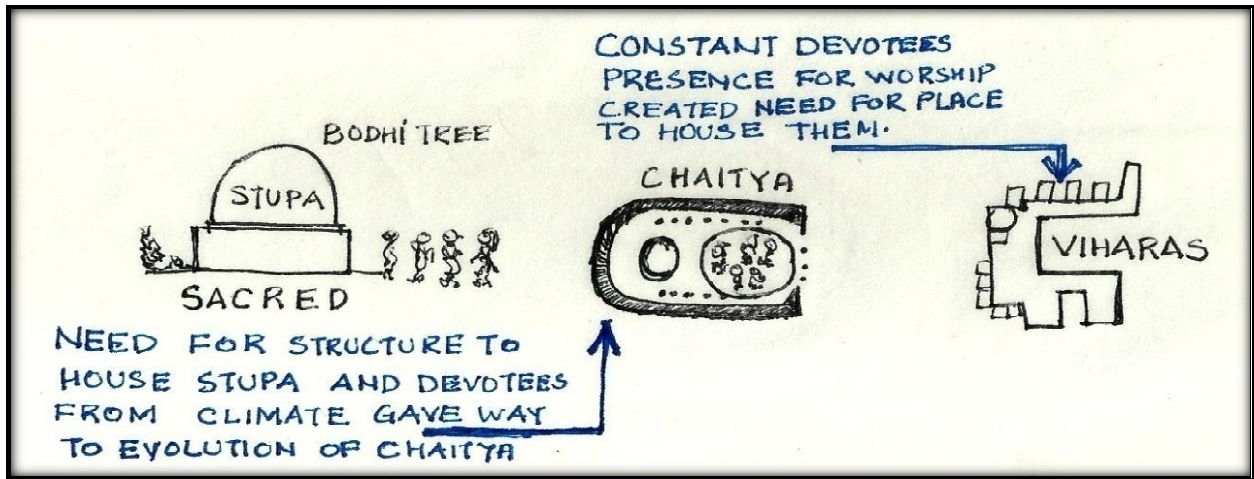 CONSTANT DEVOTEES
PRESENCE FOR WORSHIP
CREATED NEED FOR PLACE
TO HOUSE THEM.
BODHI TREE
STUPA
SACRED
CHAITYA
VIHARAS
NEED FOR STRUCTURE TO
HOUSE STUPA AND DEVOTEES
FROM CLIMATE GAVE WAY
TO EVOLUTION OF CHAITYA